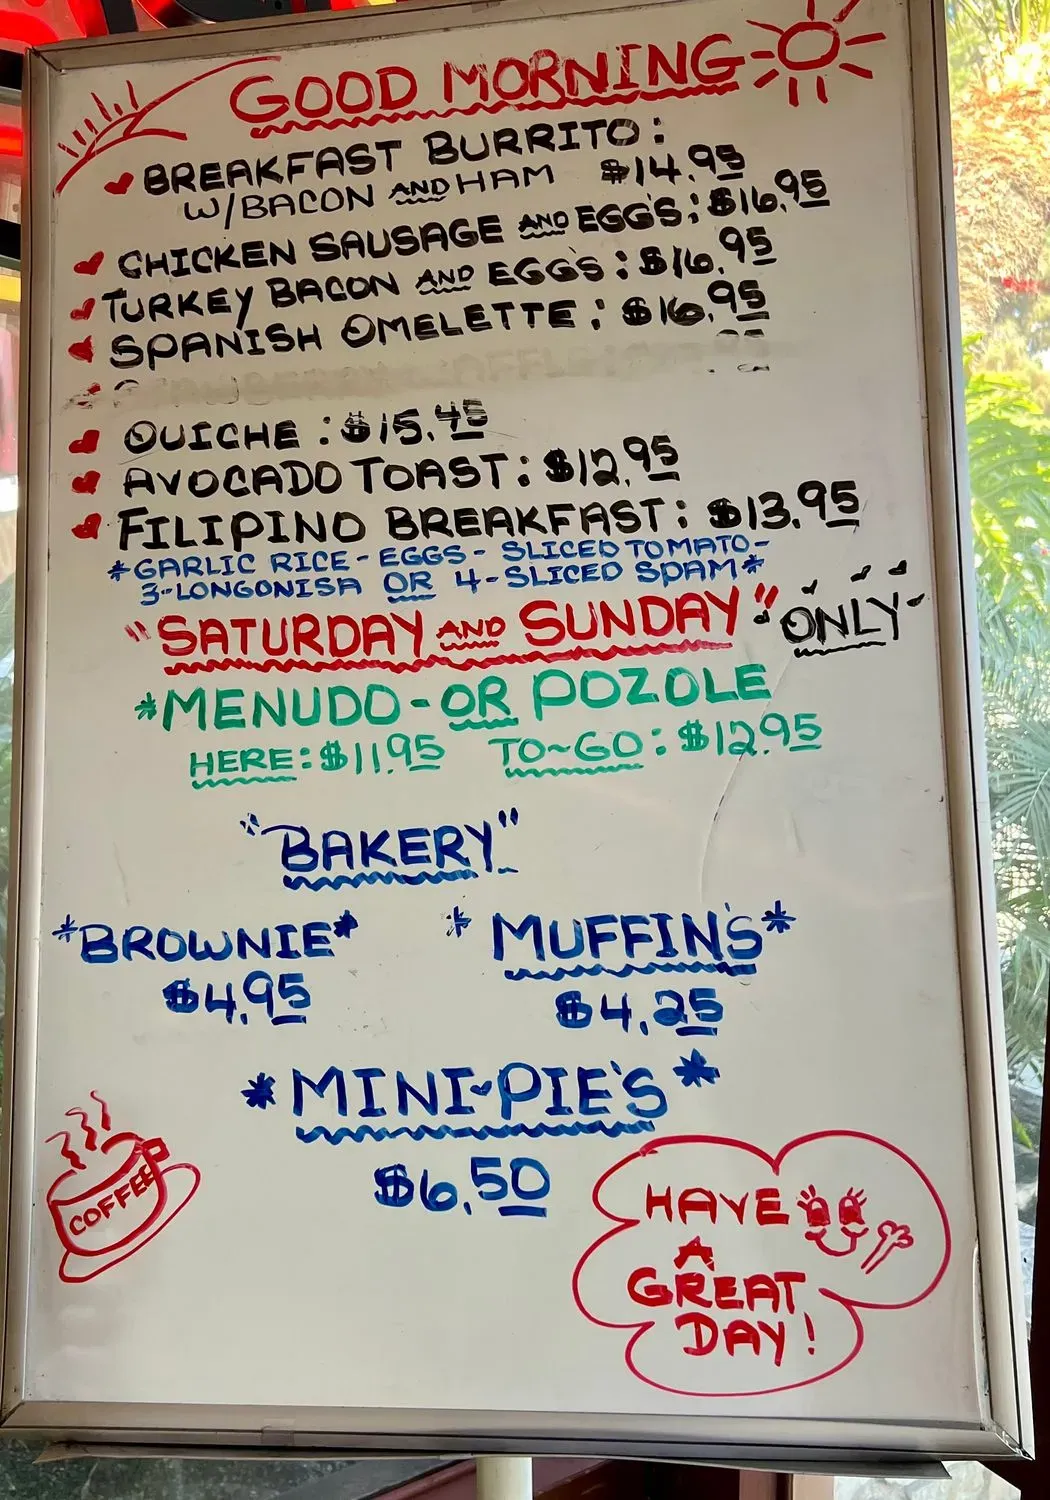 GOOD MORNING
BREAKFAST BURRITO:
W/BACON AND HAM $14.95
CHICKEN SAUSAGE AND EGG'S: $16.95
TURKEY BACON AND EGG'S: $16.95
SPANISH OMELETTE: $16.95
QUICHE: $15.45
AVOCADO TOAST: $12.95
FILIPINO BREAKFAST: $13.95
*GARLIC RICE - EGGS - SLICED TOMATO-
3-LONGONISA OR 4-SLICED SPAM*
"SATURDAY AND SUNDAY" ONLY
*MENUDO-OR POZOLE
HERE: $11.95 TO~GO: $12.95
"BAKERY"
*BROWNIE* *MUFFIN'S*
$4.95 $4.25
*MINI-PIE'S*
$6.50
COFFEE
HAVE
A
GREAT
DAY!